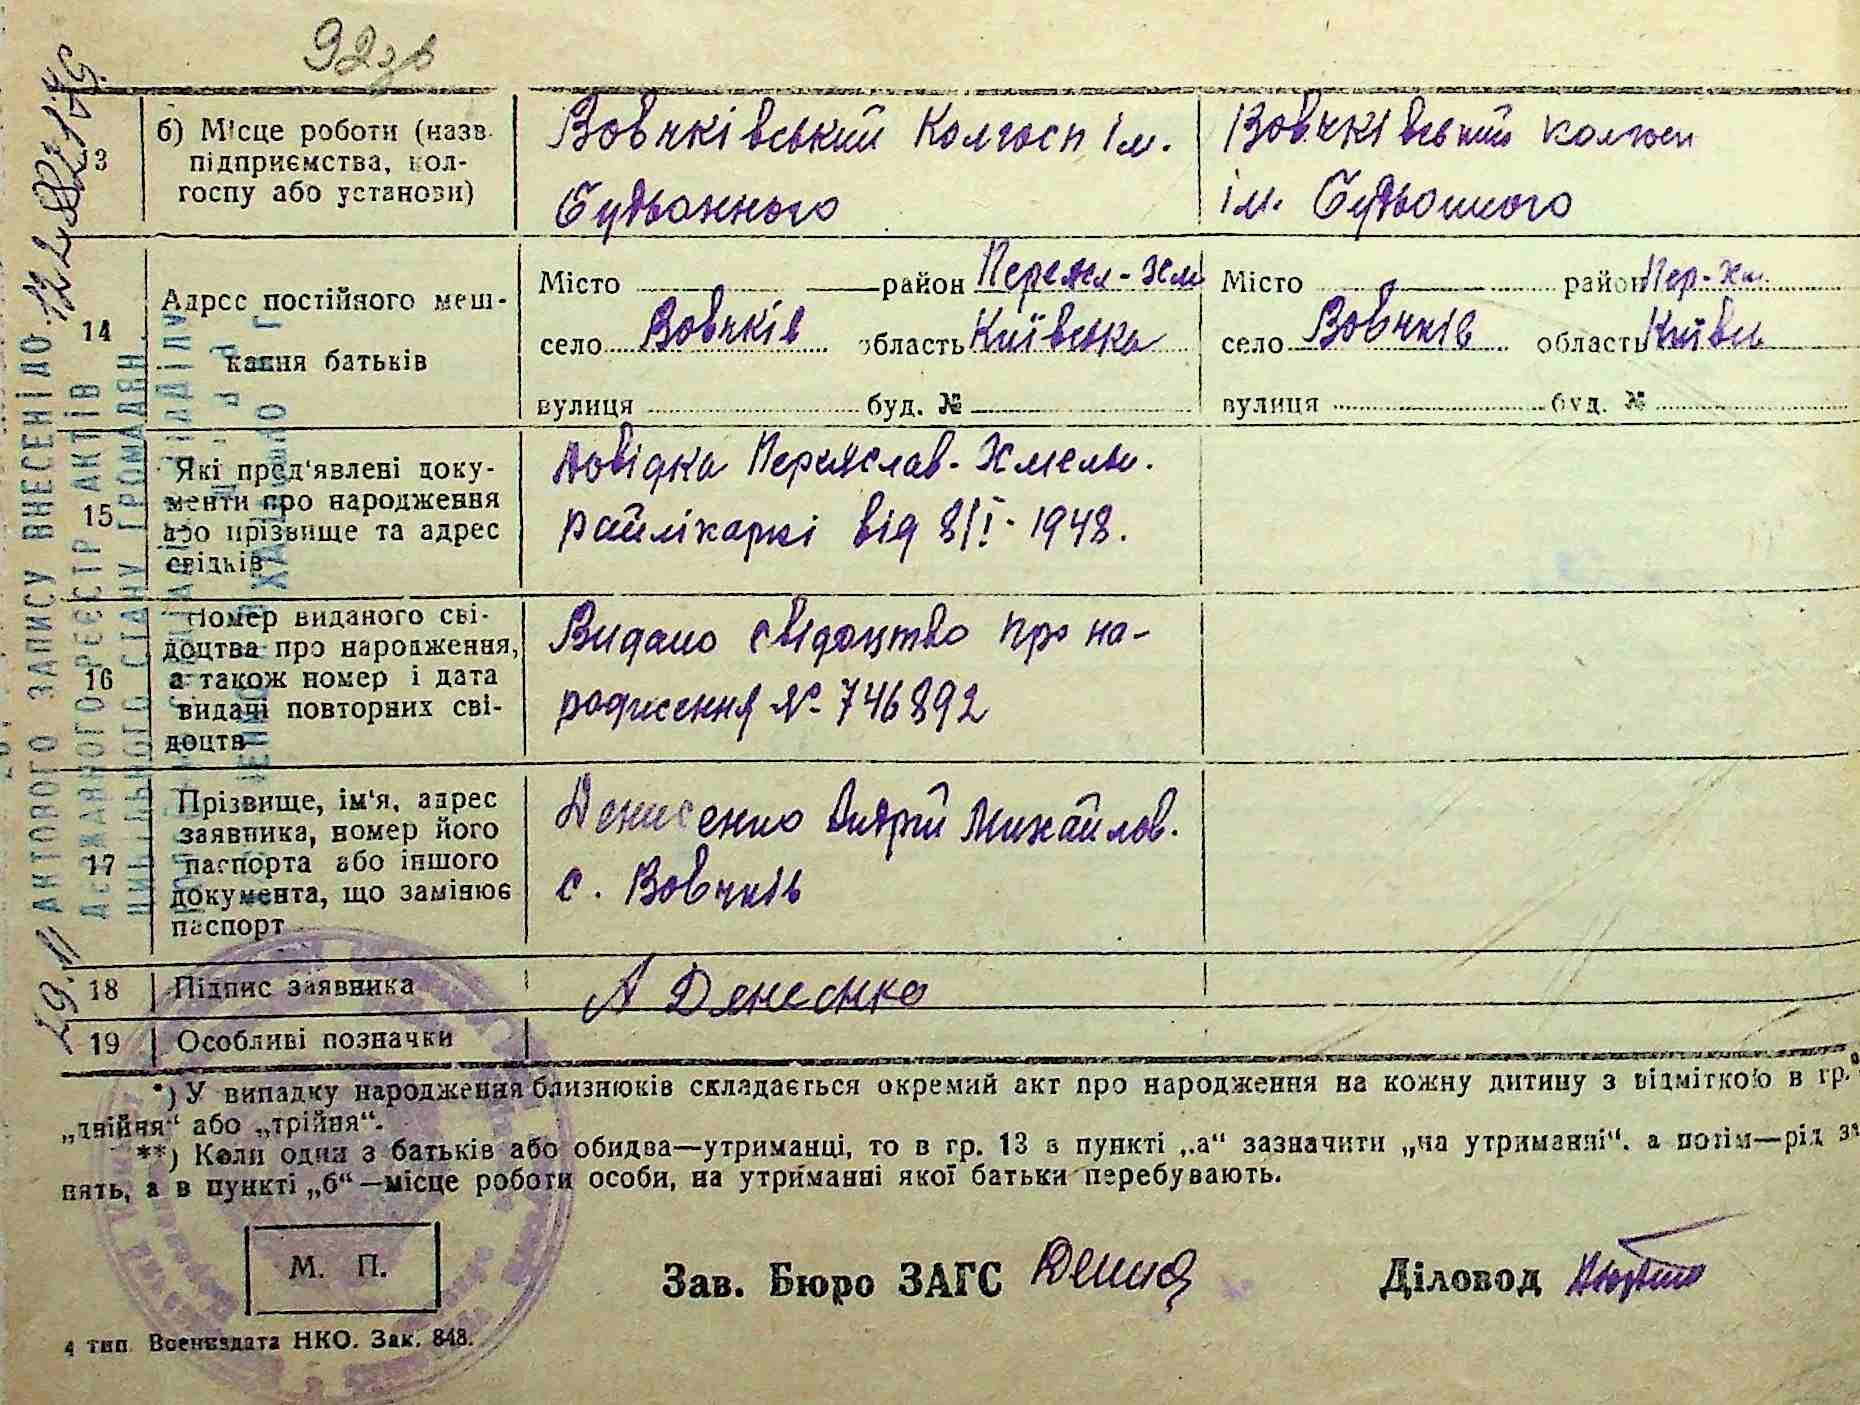 92зв
13
б) Місце роботи (назв.
підприємства, кол-
госпу або установи)
Вовчківський Колгосп ім.
Будьонного
Вовчківський колгосп
ім. Будьонного
14
Адрес постійного меш-
кання батьків
Місто район Переясл-Хм
село Вовчків область Київська
вулиця буд. №
Місто район Пер-Хм.
село Вовчків область Київсь
вулиця буд. №
15
Які пред'явлені доку-
менти про народження
або прізвище та адрес
свідків
довідка Переяслав-Хмельн.
райлікарні від 8/І-1948.
16
Номер виданого сві-
доцтва про народження,
а також номер і дата
видачі повторних сві-
доцтв
Видано свідоцтво про на-
родження № 746892
17
Прізвище, ім'я, адрес
заявника, номер його
паспорта або іншого
документа, що замінює
паспорт
Денисенко Андрій Михайлов.
с. Вовчків
18
Підпис заявника
А Денесенко
19
Особливі позначки
*) У випадку народження близнюків складається окремий акт про народження на кожну дитину з відміткою в гр.
„двійня“ або „трійня“.
**) Коли один з батьків або обидва—утриманці, то в гр. 13 в пункті „а“ зазначити „на утриманні“, а потім—рід за
нять, а в пункті „б“—місце роботи особи, на утриманні якої батьки перебувають.
М. П.
Зав. Бюро ЗАГС
Діловод
4 тип. Воениздата НКО. Зак. 848.
АКТОВОГО ЗАПИСУ ВНЕСЕНІ ДО
ДЕРЖАВНОГО РЕЄСТР АКТІВ
ЦИВІЛЬНОГО СТАНУ ГРОМАДЯН